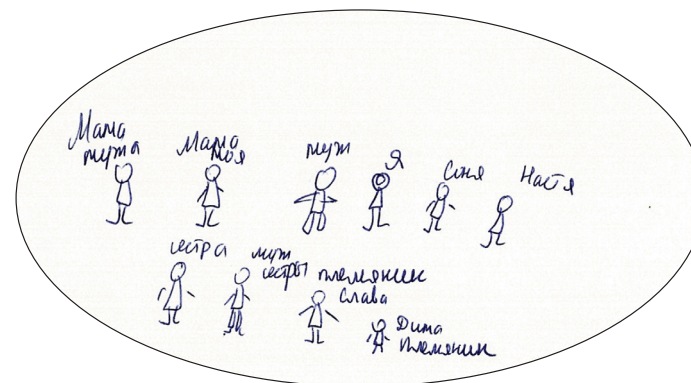 Мама
мужа
Мама
моя
муж
Я
Соня
Настя
сестра
муж
сестры
племянник
Слава
Дима
племянник